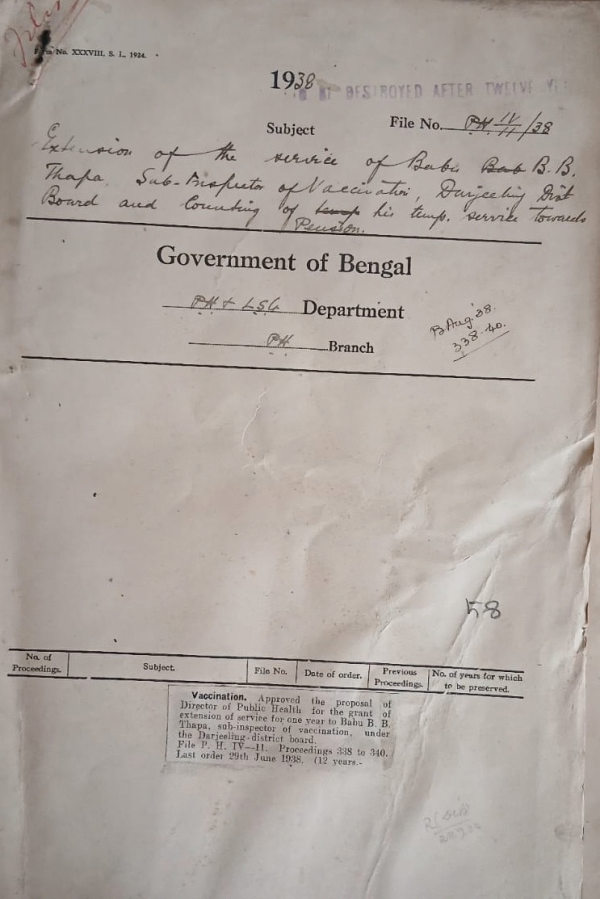 Form No. XXXVIII, S. L., 1924.
1938
BE DESTROYED AFTER TWELVE YE
Subject
File No. PH IV/11/38
Extension of the service of Babu Bab B. B.
Thapa, Sub-Inspector of Vaccination, Darjeeling Dist
Board and counting of his temp. service towards
Pension.
Government of Bengal
PH & LSG Department
PH Branch
B Aug '38.
338-40.
58
No. of Proceedings.
Subject.
File No.
Date of order.
Previous Proceedings.
No. of years for which to be preserved.
Vaccination. Approved the proposal of
Director of Public Health for the grant of
extension of service for one year to Babu B. B.
Thapa, sub-inspector of vaccination, under
the Darjeeling district board.
File P. H. IV—11. Proceedings 338 to 340.
Last order 29th June 1938. (12 years.-